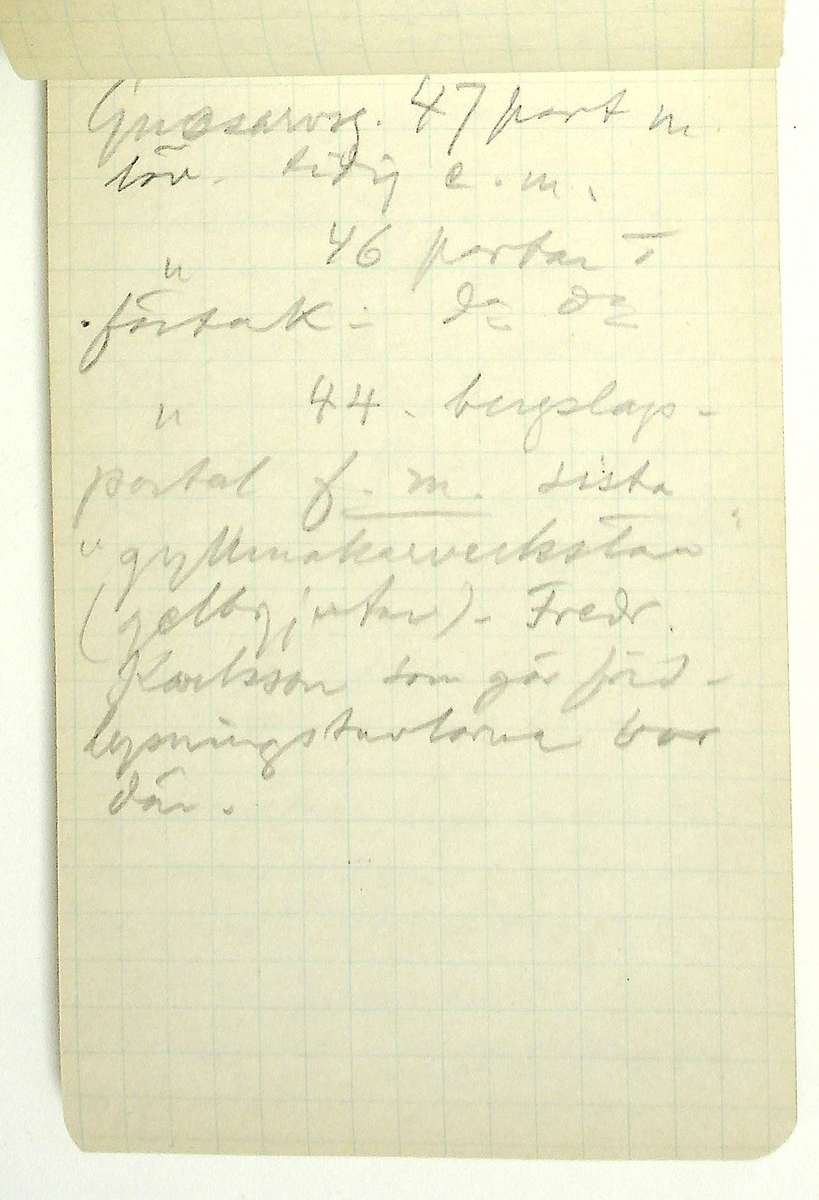 Gnosarvsg. 47 port m
löv. tidig e.m.
" 46 portar i
förtak - do do
" 44. bergslags-
portal f.m. sista
"gyllmakarverkstan"
(gelbgjutar) - Fredr.
Karlsson som gör förd-
lysningstavlorna bor
där.